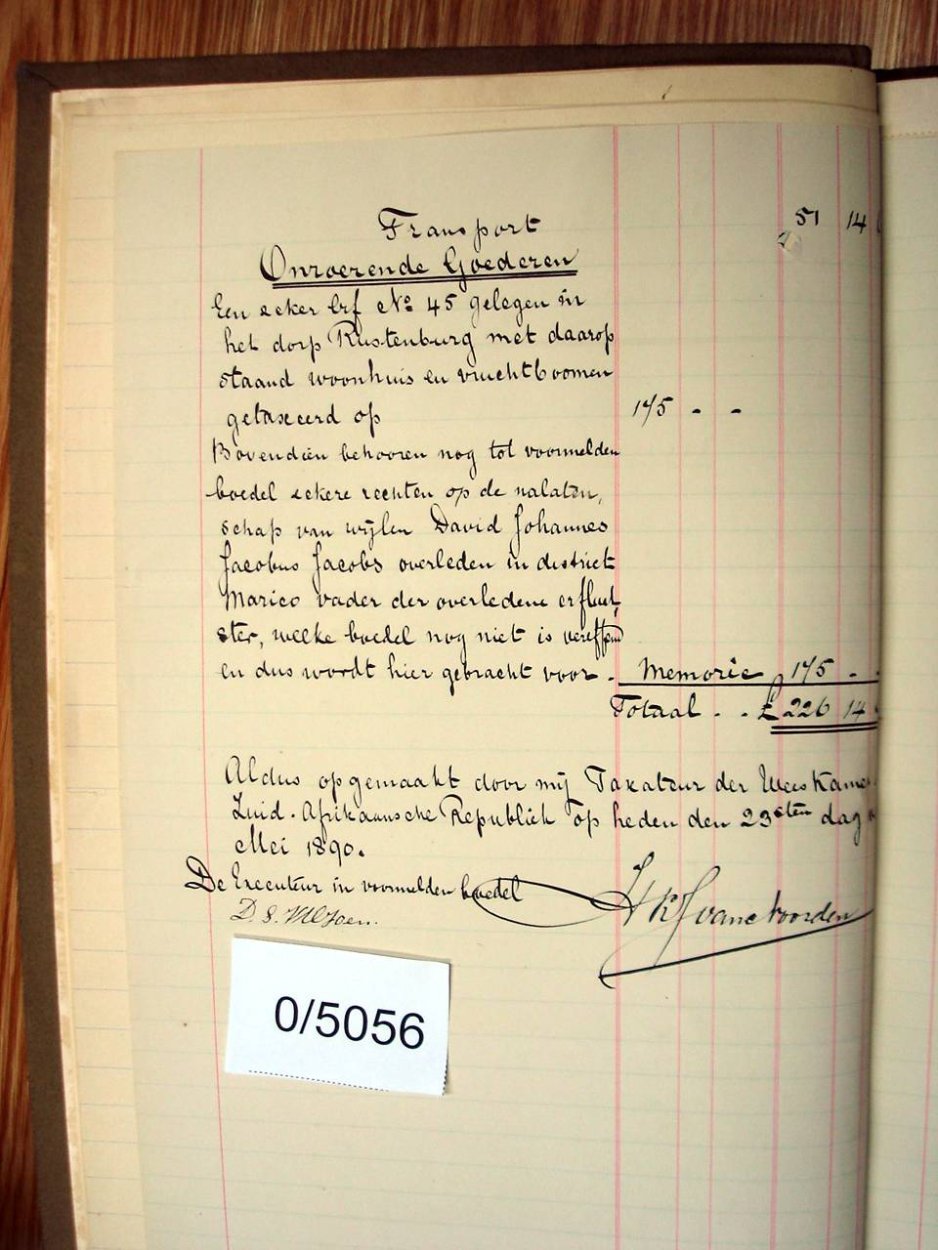 Transport 51 14
Onroerende Goederen
Een zeker Erf No 45 gelegen in
het dorp Rustenburg met daarop
staand woonhuis en vruchtboomen
getaxeerd op 175 - -
Bovendien behooren nog tot voormelden
boedel zekere rechten op de nalaten,
schap van wijlen David Johannes
Jacobus Jacobs overleden in district
Marico vader der overledene erflaat,
ster, welke boedel nog niet is vereffend
en dus wordt hier gebracht voor - Memorie 175 -
Totaal - - £ 226 14
Aldus opgemaakt door mij Taxateur der Weeskamer
Zuid-Afrikaansche Republiek op heden den 23sten dag
Mei 1890.
De Executeur in voormelden boedel
D. S.
0/5056